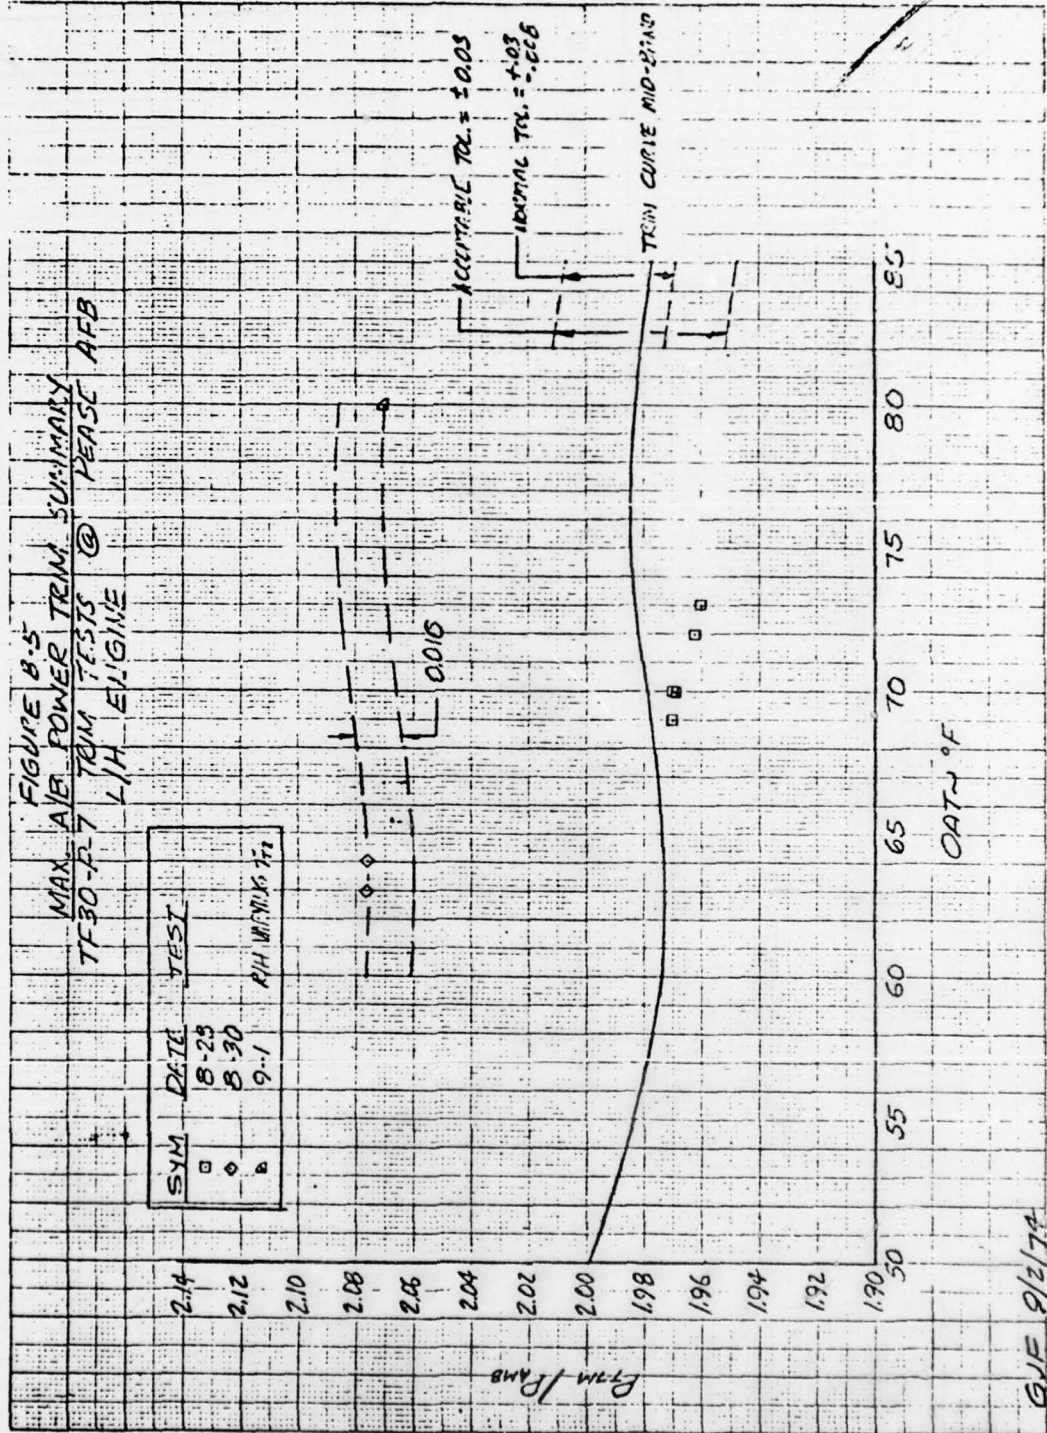 FIGURE B-5
MAX. A/B POWER TRIM SUMMARY
TF30-P-7 TRIM TESTS @ PEASE AFB
L/H ENGINE
SYM DATE TEST
8-29
8-30
9-1 R/H
ACCEPTABLE TOL. = ±0.03
NORMAL TOL. = +.03
-.006
TRIM CURVE MID-BAND
0.016
2.14
2.12
2.10
2.08
2.06
2.04
2.02
2.00
1.98
1.96
1.94
1.92
1.90
50
55
60
65
70
75
80
85
OAT~°F
GJF 9/2/74